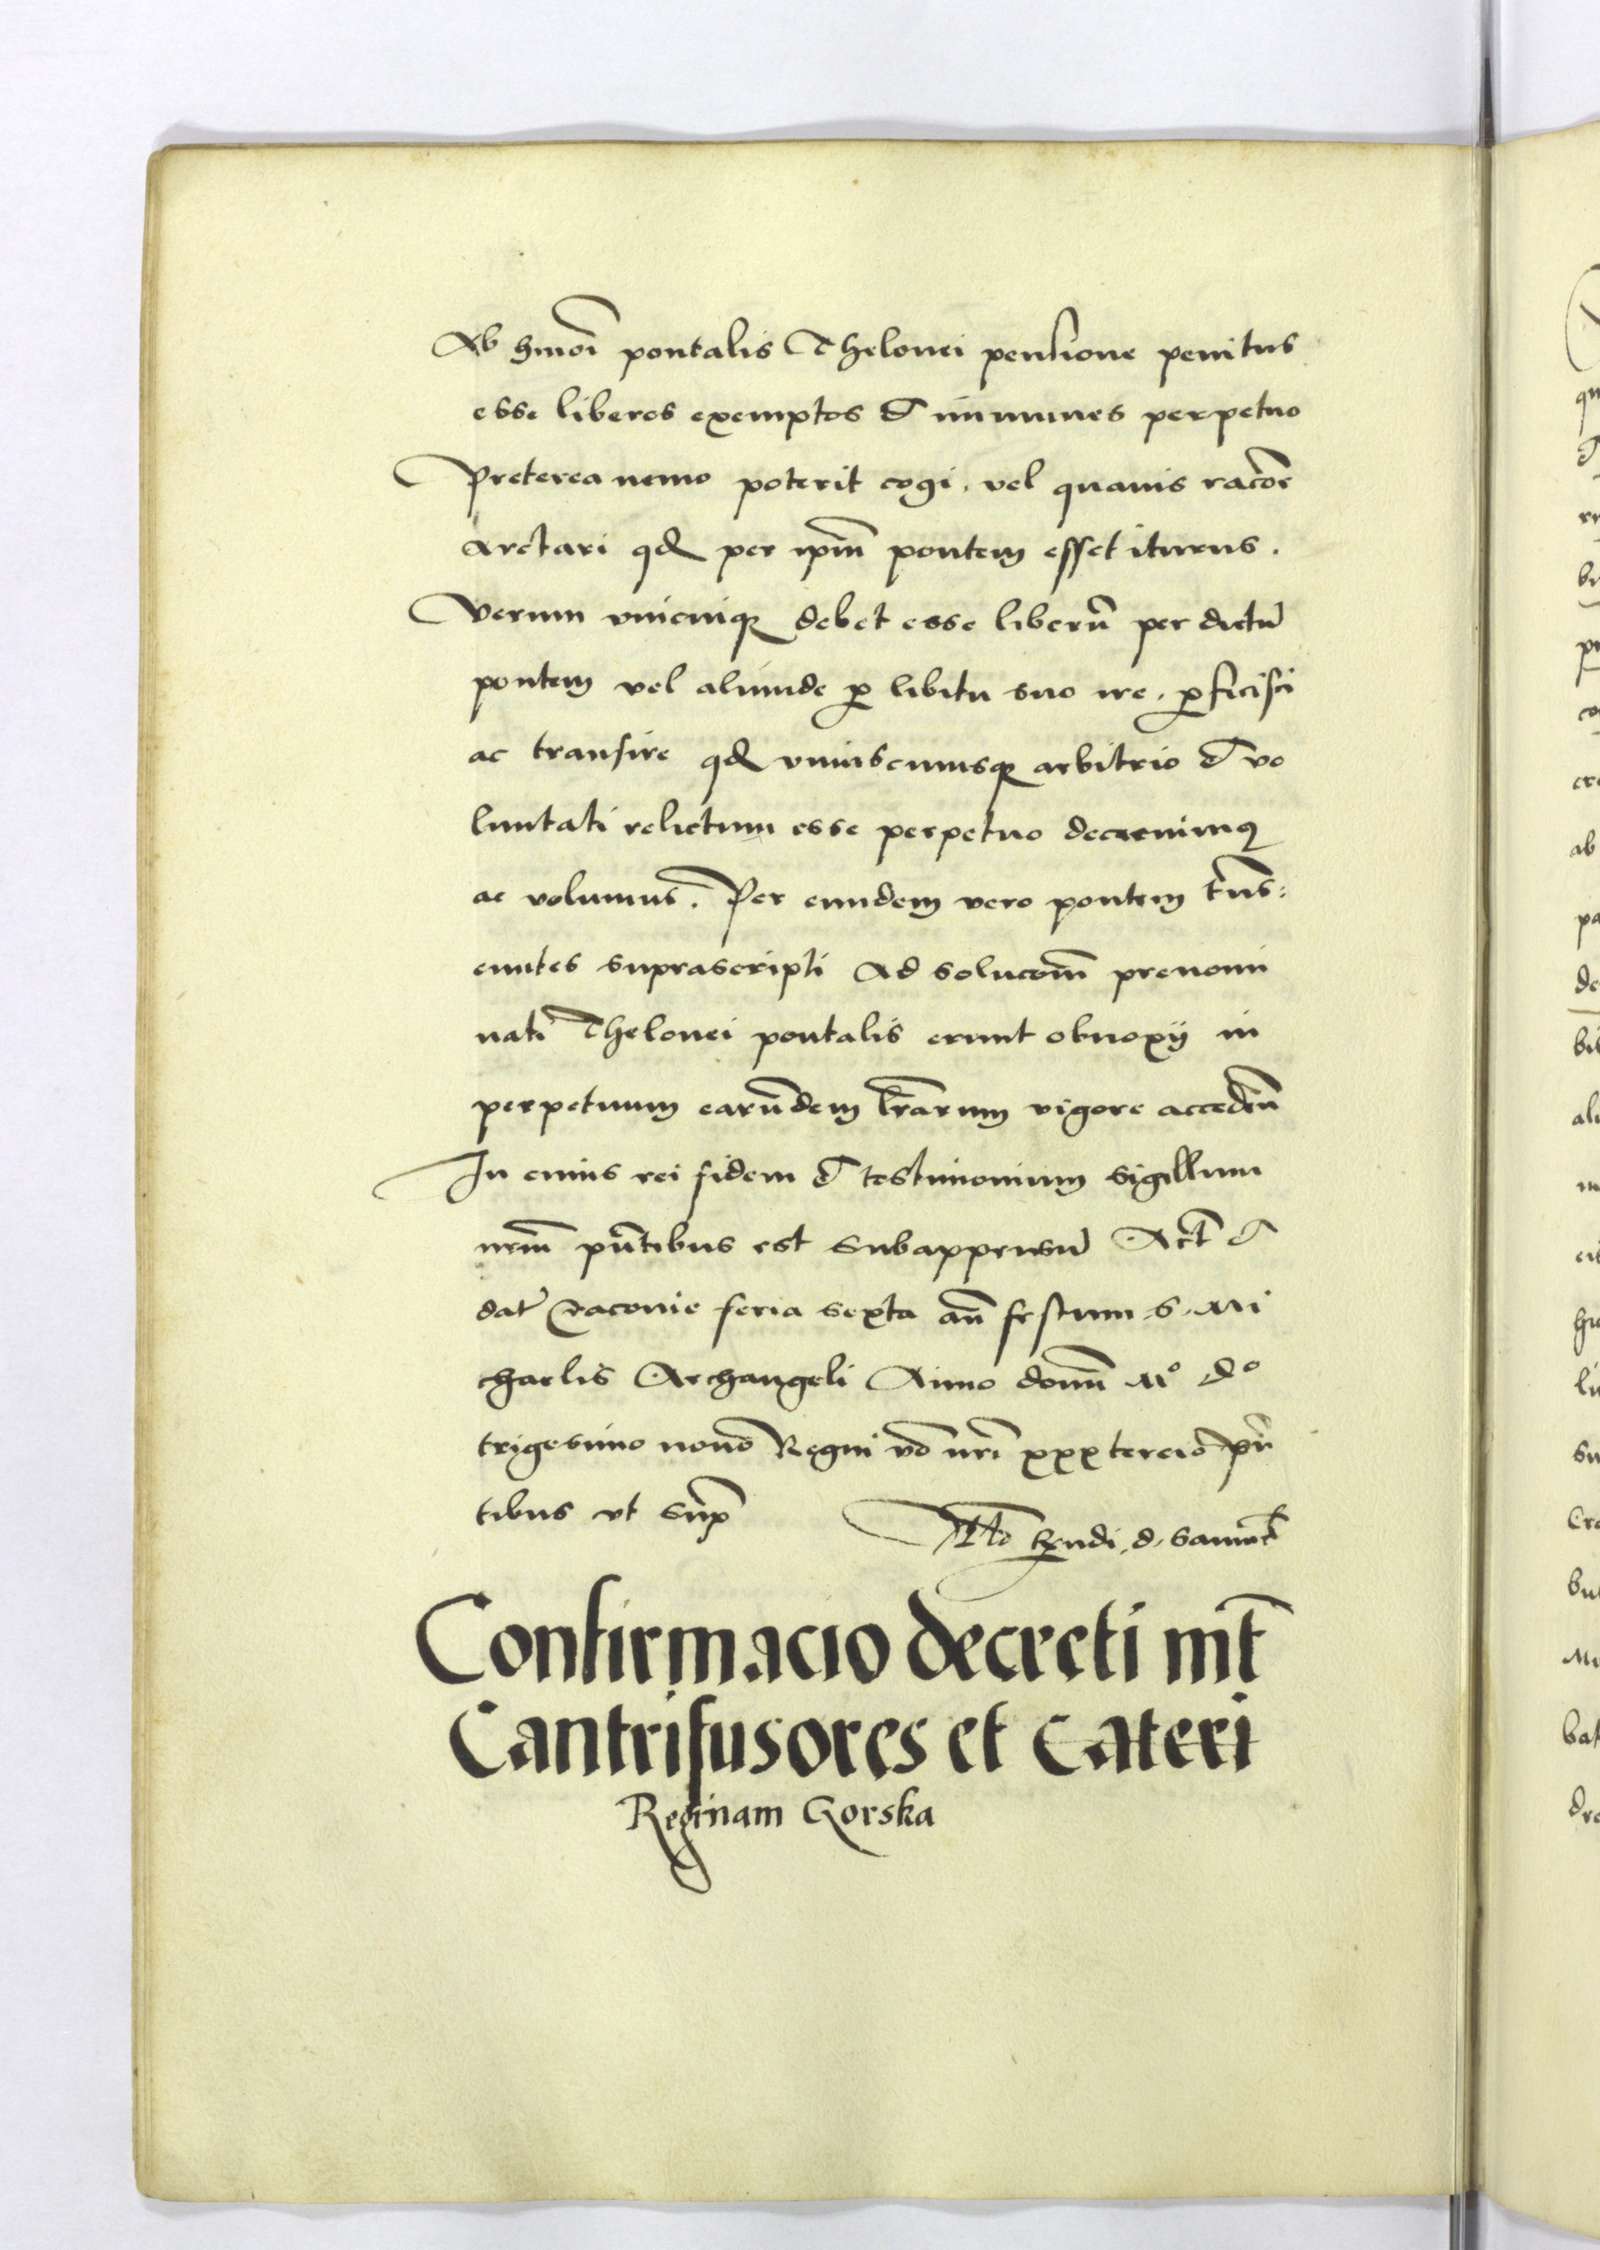 Ab hmoi pontalis Thelonei pensione penitus
esse liberos exemptos et immunes perpetuo
Preterea nemo poterit cogi . vel quauis racoe
Arctari qd per ipm pontem esset iturus .
Verum vnicuiqz debet esse liberu per dictu
pontem vel aliunde p libitu suo ire . pficisci
ac transire qd vniuscuiusqz arbitrio et vo
luntati relictum esse perpetuo decreuimqz
ac volumus . Per eundem vero pontem trns:
euntes suprascripti Ad solucoem prenomi
nati Thelonei pontalis erunt obnoxij in
perpetuum earundem lrarum vigore accedeñ
In cuius rei fidem et testimonium sigillum
nrm pntibus est subappensu Act et
dat Cracouie feria sexta añ festum . S . Mi
chaelis Archangeli Anno domi Mo do
trigesimo nono Regni vo nri xxx tercio pñ
tibus vt sup
Rndi . d . Samuel
Confirmacio decreti int
Cantrifusores et Cateri
Reginam Gorska